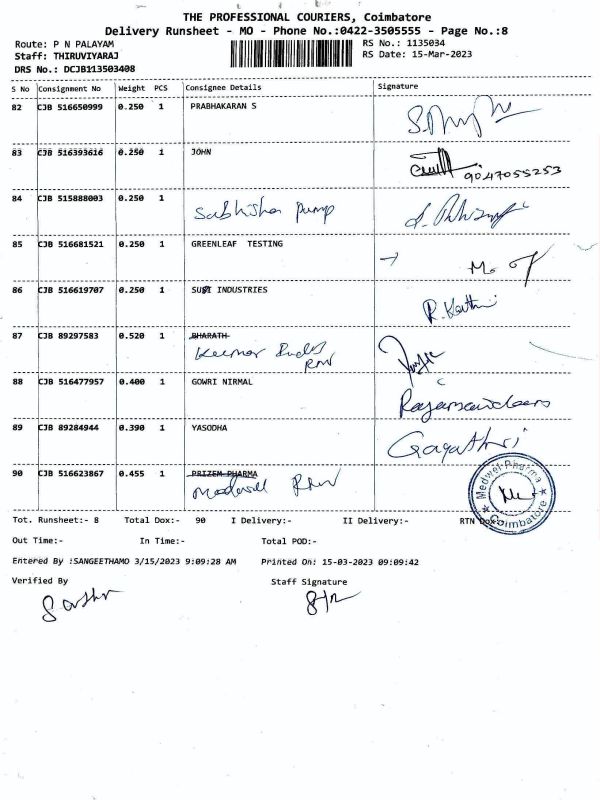 THE PROFESSIONAL COURIERS, Coimbatore
Delivery Runsheet - MO - Phone No.:0422-3505555 - Page No.:8
Route: P N PALAYAM
RS No.: 1135034
Staff: THIRUVIYARAJ
RS Date: 15-Mar-2023
DRS No.: DCJB113503408
S No Consignment No Weight PCS Consignee Details Signature
82 CJB 516650999 0.250 1 PRABHAKARAN S
83 CJB 516393616 0.250 1 JOHN 9047055253
84 CJB 515888003 0.250 1 Sabhisha Pump
85 CJB 516681521 0.250 1 GREENLEAF TESTING
86 CJB 516619707 0.250 1 INDUSTRIES
87 CJB 89297583 0.520 1 BHARATH
Kumar
88 CJB 516477957 0.400 1 GOWRI NIRMAL
89 CJB 89284944 0.390 1 YASODHA Gayathri
90 CJB 516623867 0.455 1 PRIZEM PHARMA
Medwel-Pharma
Coimbatore
Tot. Runsheet:- 8 Total Dox:- 90 I Delivery:- II Delivery:- RTN Dox:-
Out Time:- In Time:- Total POD:-
Entered By :SANGEETHAMO 3/15/2023 9:09:28 AM Printed On: 15-03-2023 09:09:42
Verified By Staff Signature